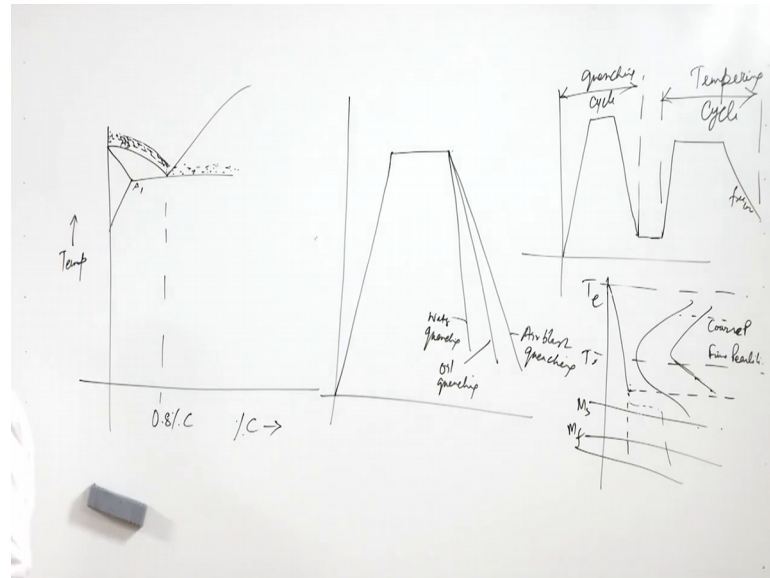 Temp
A1
0.8%.C
%C →
Water
quenching
Oil
quenching
Air blast
quenching
quenching
cycle
Tempering
Cycle
Te
Coarse P
Fine Pearlite
Ms
Mf